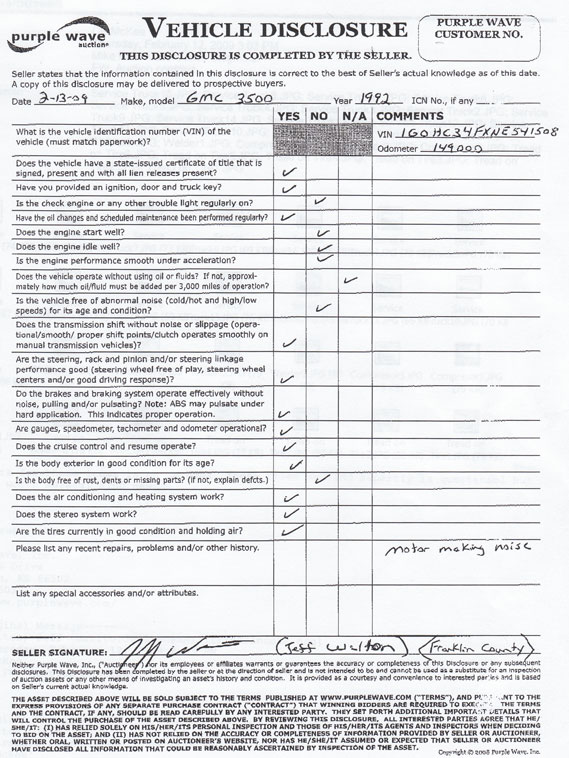 purple wave
auction
VEHICLE DISCLOSURE
PURPLE WAVE
CUSTOMER NO.
THIS DISCLOSURE IS COMPLETED BY THE SELLER.
Seller states that the information contained in this disclosure is correct to the best of Seller's actual knowledge as of this date.
A copy of this disclosure may be delivered to prospective buyers.
Date 2-13-09 Make, model GMC 3500 Year 1992 ICN No., if any
YES NO N/A COMMENTS
What is the vehicle identification number (VIN) of the
vehicle (must match paperwork)?
VIN 1GOHC34FXNE541508
Odometer 149000
Does the vehicle have a state-issued certificate of title that is
signed, present and with all lien releases present? ✓
Have you provided an ignition, door and truck key? ✓
Is the check engine or any other trouble light regularly on? ✓
Have the oil changes and scheduled maintenance been performed regularly? ✓
Does the engine start well? ✓
Does the engine idle well? ✓
Is the engine performance smooth under acceleration? ✓
Does the vehicle operate without using oil or fluids? If not, approxi-
mately how much oil/fluid must be added per 3,000 miles of operation? ✓
Is the vehicle free of abnormal noise (cold/hot and high/low
speeds) for its age and condition? ✓
Does the transmission shift without noise or slippage (opera-
tional/smooth/ proper shift points/clutch operates smoothly on
manual transmission vehicles)? ✓
Are the steering, rack and pinion and/or steering linkage
performance good (steering wheel free of play, steering wheel
centers and/or good driving response)? ✓
Do the brakes and braking system operate effectively without
noise, pulling and/or pulsating? Note: ABS may pulsate under
hard application. This indicates proper operation. ✓
Are gauges, speedometer, tachometer and odometer operational? ✓
Does the cruise control and resume operate? ✓
Is the body exterior in good condition for its age? ✓
Is the body free of rust, dents or missing parts? (if not, explain defcts.) ✓
Does the air conditioning and heating system work? ✓
Does the stereo system work? ✓
Are the tires currently in good condition and holding air? ✓
Please list any recent repairs, problems and/or other history. motor making noise
List any special accessories and/or attributes.
SELLER SIGNATURE: (Jeff Walton) (Franklin County)
Neither Purple Wave, Inc., ("Auctioneer") nor its employees or affiliates warrants or guarantees the accuracy or completeness of this Disclosure or any subsequent
disclosures. This Disclosure has been completed by the seller or at the direction of seller and is not intended to be and cannot be used as a substitute for an inspection
of auction assets or any other means of investigating an asset's history and condition. It is provided as a courtesy and convenience to interested parties and is based
on Seller's current actual knowledge.
THE ASSET DESCRIBED ABOVE WILL BE SOLD SUBJECT TO THE TERMS PUBLISHED AT WWW.PURPLEWAVE.COM ("TERMS"), AND TO THE
EXPRESS PROVISIONS OF ANY SEPARATE PURCHASE CONTRACT ("CONTRACT") THAT WINNING BIDDERS ARE REQUIRED TO THE TERMS
AND THE CONTRACT, IF ANY, SHOULD BE READ CAREFULLY BY ANY INTERESTED PARTY. THEY SET FORTH ADDITIONAL IMPORTANT DETAILS THAT
WILL CONTROL THE PURCHASE OF THE ASSET DESCRIBED ABOVE. BY REVIEWING THIS DISCLOSURE, ALL INTERESTED PARTIES AGREE THAT HE/
SHE/IT: (I) HAS RELIED SOLELY ON HIS/HER/ITS PERSONAL INSPECTION AND THOSE OF HIS/HER/ITS AGENTS AND INSPECTORS WHEN DECIDING
TO BID ON THE ASSET; AND (II) HAS NOT RELIED ON THE ACCURACY OR COMPLETENESS OF INFORMATION PROVIDED BY SELLER OR AUCTIONEER,
WHETHER ORAL, WRITTEN OR POSTED ON AUCTIONEER'S WEBSITE, NOR HAS HE/SHE/IT ASSUMED OR EXPECTED THAT SELLER OR AUCTIONEER
HAVE DISCLOSED ALL INFORMATION THAT COULD BE REASONABLY ASCERTAINED BY INSPECTION OF THE ASSET.
Copyright © 2008 Purple Wave, Inc.